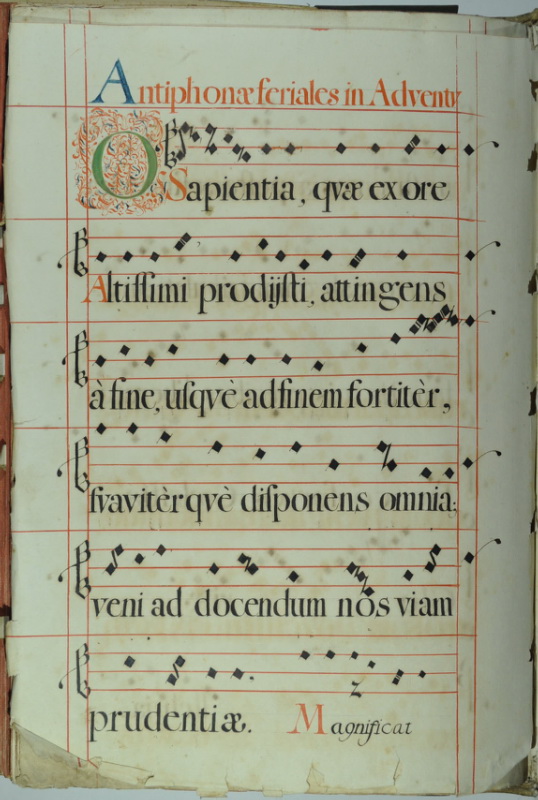 Antiphonæ feriales in Adventu
O Sapientia, qvæ ex ore
Altiſſimi prodijſti, attingens
à fine, uſqvè ad finem fortitèr,
ſvavitèrqvè diſponens omnia:
veni ad docendum nos viam
prudentiæ. Magnificat